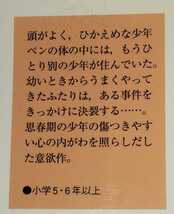 頭がよく、ひかえめな少年
ベンの体の中には、もうひ
とり別の少年が住んでいた。
幼いときからうまくやって
きたふたりは、ある事件を
きっかけに決裂する……。
思春期の少年の傷つきやす
い心の内がわを照らしだし
た意欲作。
●小学5・6年以上